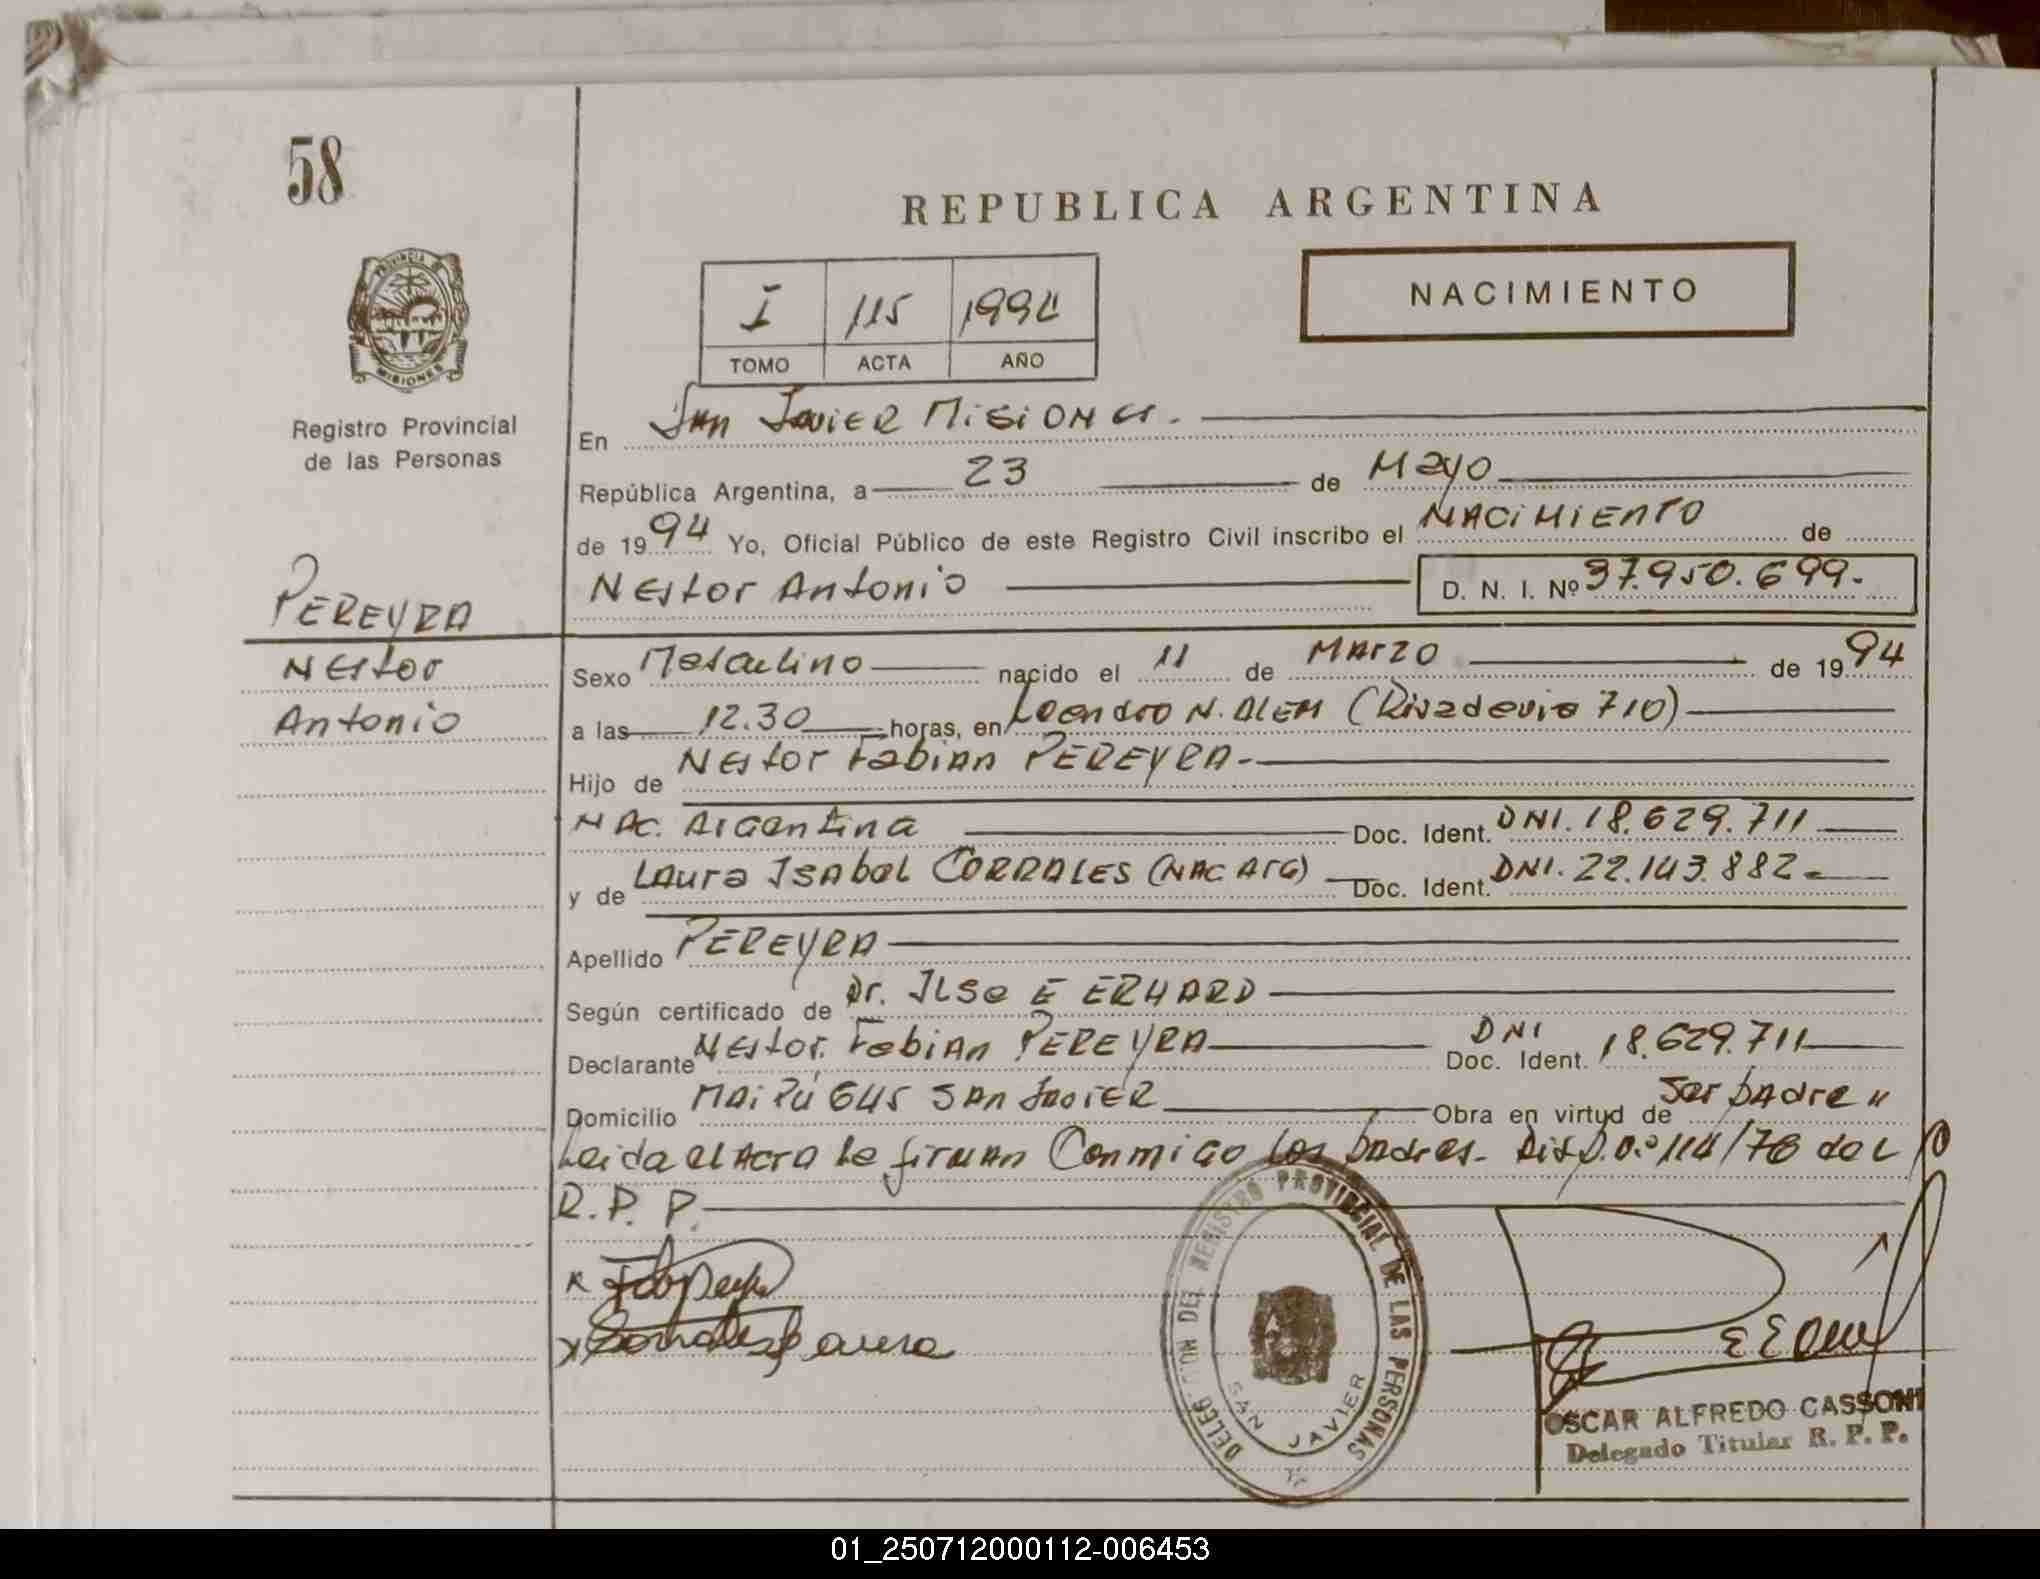 58
REPUBLICA ARGENTINA
PROVINCIA DE
MISIONES
Registro Provincial
de las Personas
I 115 1994
TOMO ACTA AÑO
NACIMIENTO
En San Javier Misiones.
República Argentina, a 23 de Mayo
de 1994 Yo, Oficial Público de este Registro Civil inscribo el Nacimiento de
Nestor Antonio D. N. I. Nº 37.950.699.
PEREYRA
Nestor
Antonio
Sexo Masculino nacido el 11 de Marzo de 1994
a las 12.30 horas, en Leandro N. Alem (Rivadavia 710)
Hijo de Nestor Fabian PEREYRA.
Nac. Argentina Doc. Ident. DNI. 18.629.711
y de Laura Isabel CORRALES (Nac Arg) Doc. Ident. DNI. 22.143.882
Apellido PEREYRA
Según certificado de Dr. Ilse E ERHARD
Declarante Nestor Fabian PEREYRA Doc. Ident. DNI 18.629.711
Domicilio Maipú 645 San Javier Obra en virtud de ser padre"
Leida el Acta la firman Conmigo los padres. Disp. 114/76 del
R. P. P.
DELEGACION DEL REGISTRO PROVINCIAL DE LAS PERSONAS
SAN JAVIER
OSCAR ALFREDO CASSONI
Delegado Titular R. P. P.
01_250712000112-006453